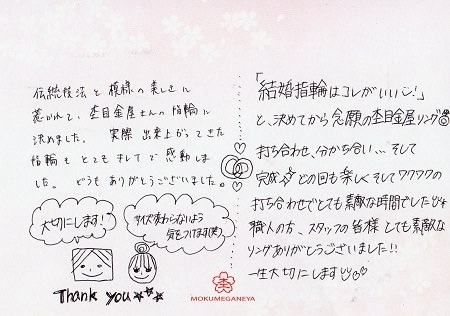 伝統技法と模様の美しさに
惹かれて、杢目金屋さんの指輪に
決めました。 実際出来上がってきた
指輪もとてもキレイで感動しま
した。どうもありがとうございました。
大切にします!
サイズ変わらないよう
気をつけてます(笑)
Thank you★★★
「結婚指輪はコレがいい!」
と、決めてから念願の杢目金屋リング
打ち合わせ、分かち合い… そして
完成 どの回も楽しくそしてワクワクの
打ち合わせでとても素敵な時間でした
職人の方、スタッフの皆様 とても素敵な
リングありがとうございました!!
一生大切にします
MOKUMEGANEYA